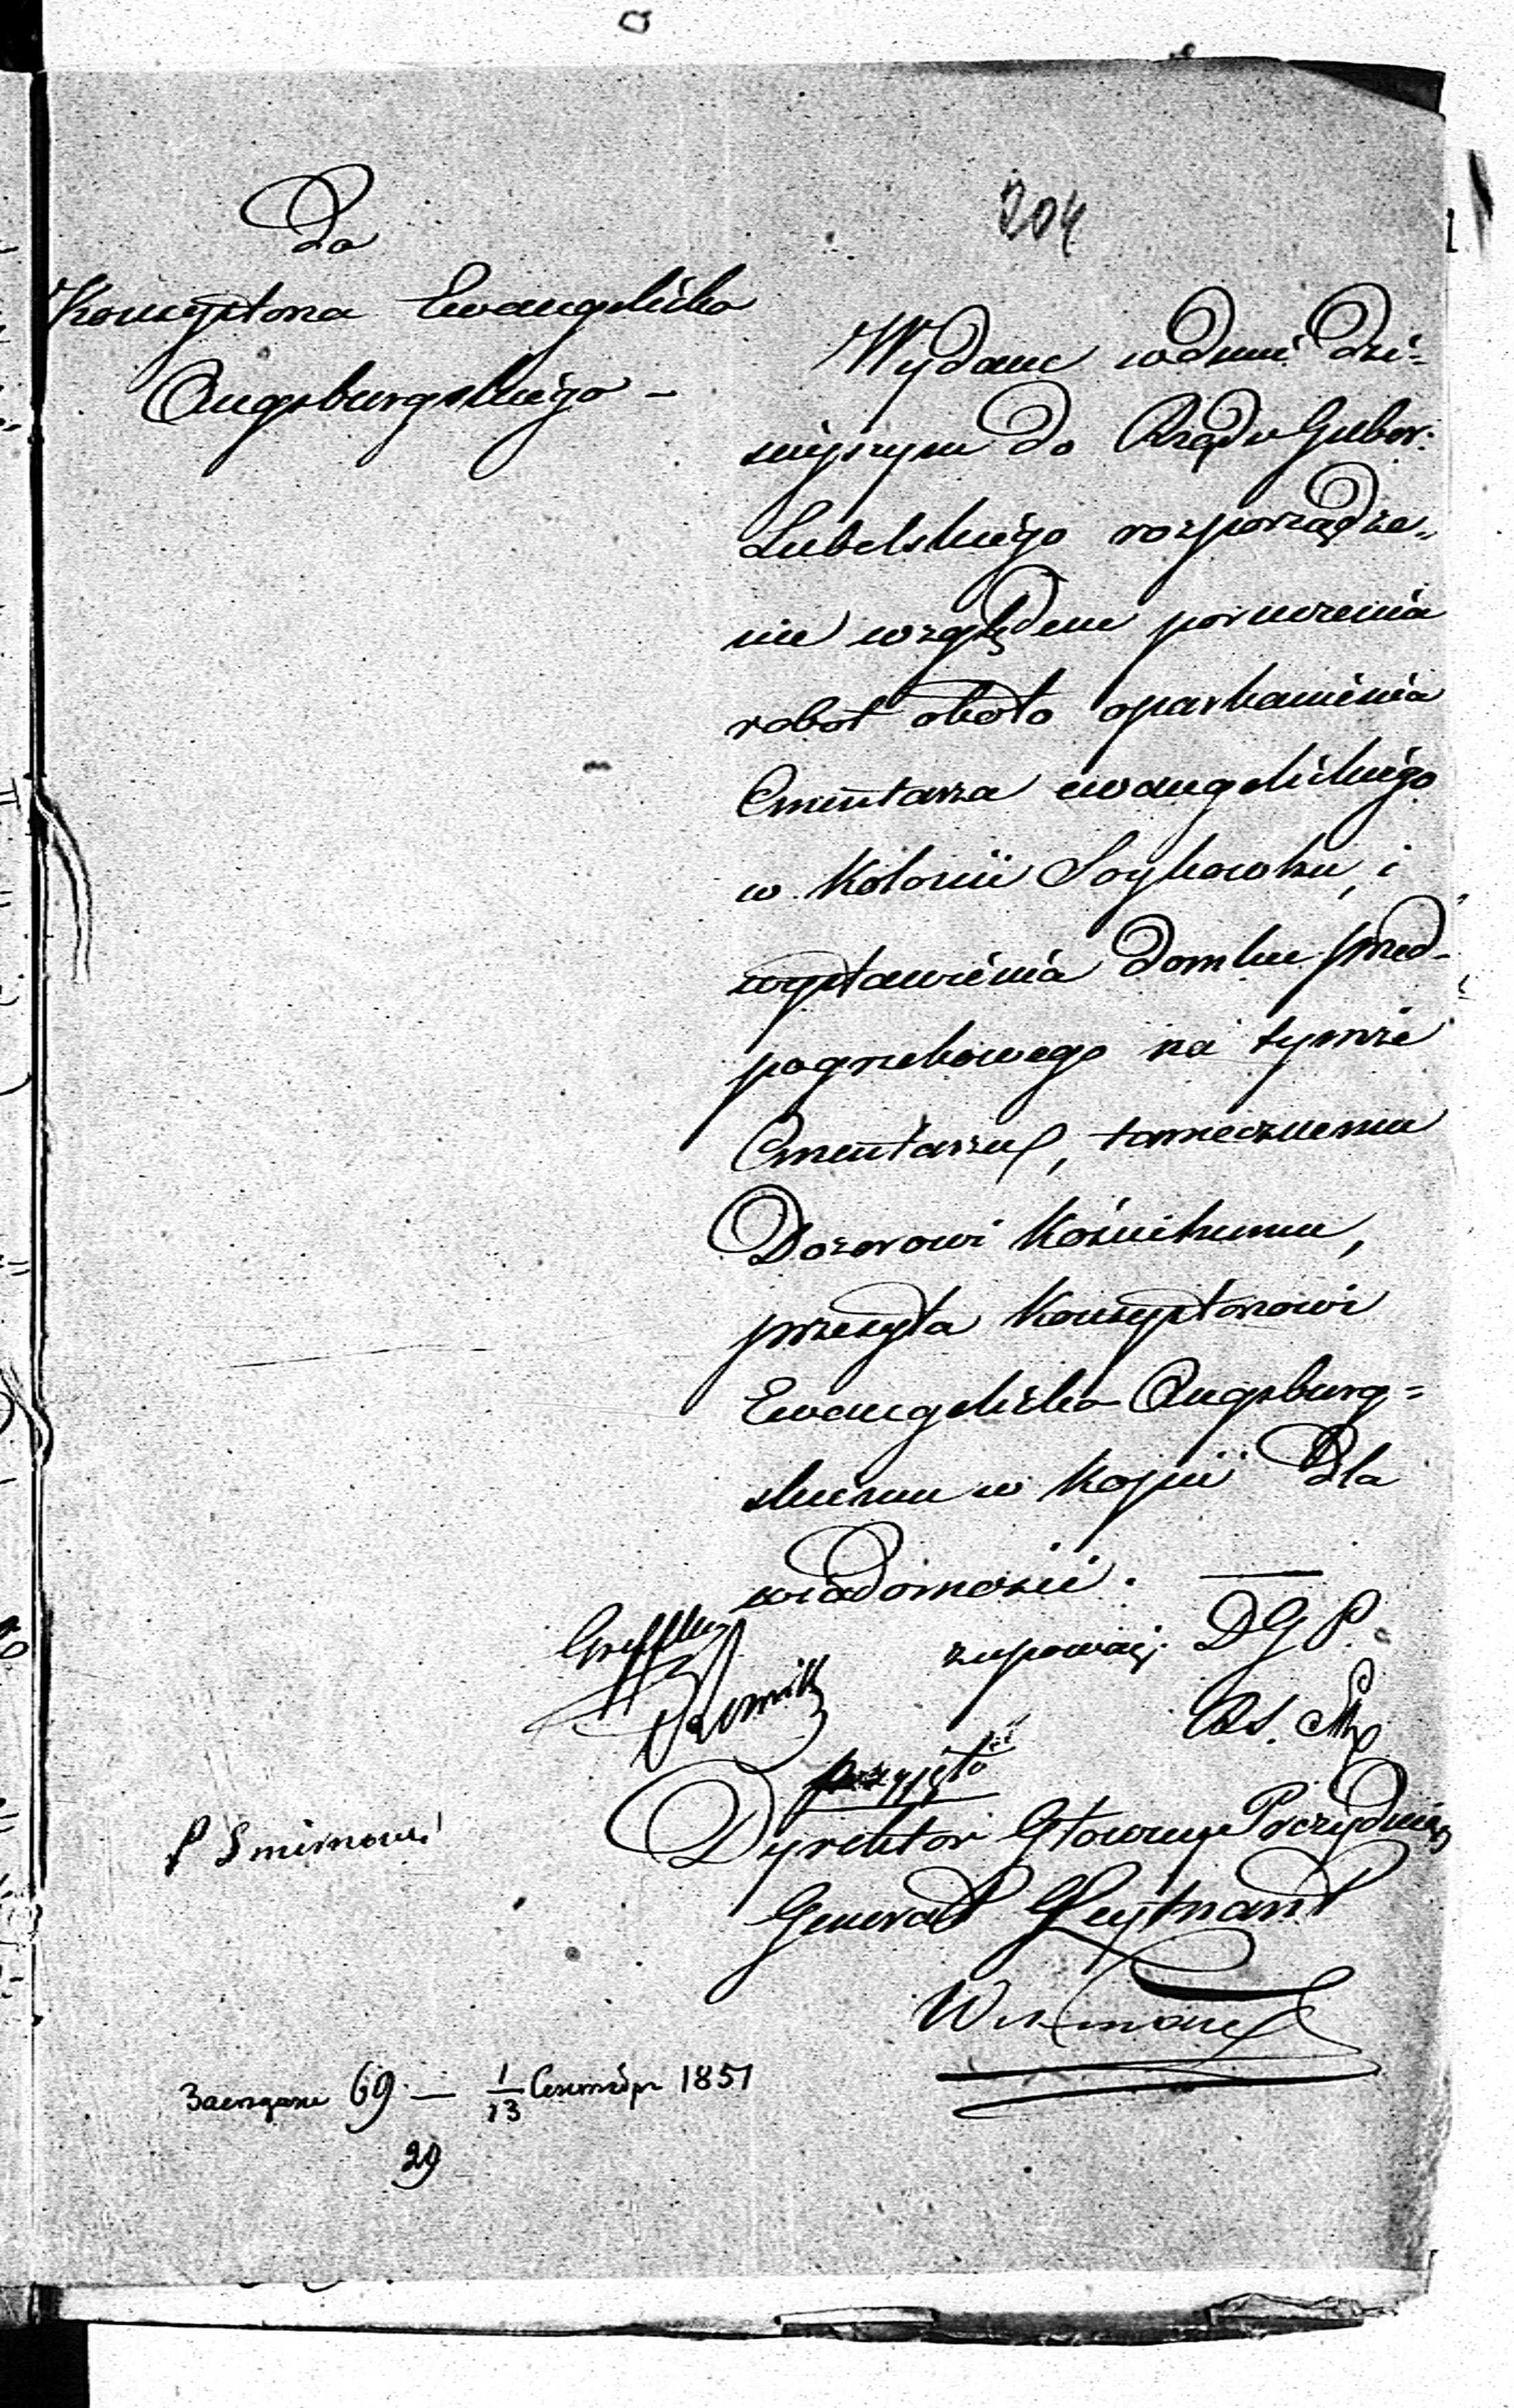 204
Do
Konsystorza Ewangelicko
Augsburgskiego –
Wydane w dniu dzi-
siejszym do Rządu Guber:
Lubelskiego rozporządze„
nie względem poruczenia
robot około oparkanienia
Cmentarza ewangelickiego
w Kolonii Syczowku, i
wystawienia domku przed-
pogrzebowego na tymże
Cmentarzu, tamecznemu
Dozorowi Kościelnemu,
przesyła Konsystorzowi
Ewangelicko-Augsburg=
skiemu w kopii dla
wiadomości. —
z upoważ: D G P.
przyjęto
Dyrektor Główny Prezydując
Generał Lejtnant
P Smirnowi
69 — 1/13 Сентября 1851
29